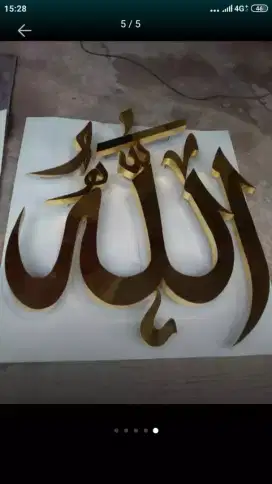 15:28
4G
46
5 / 5
الله